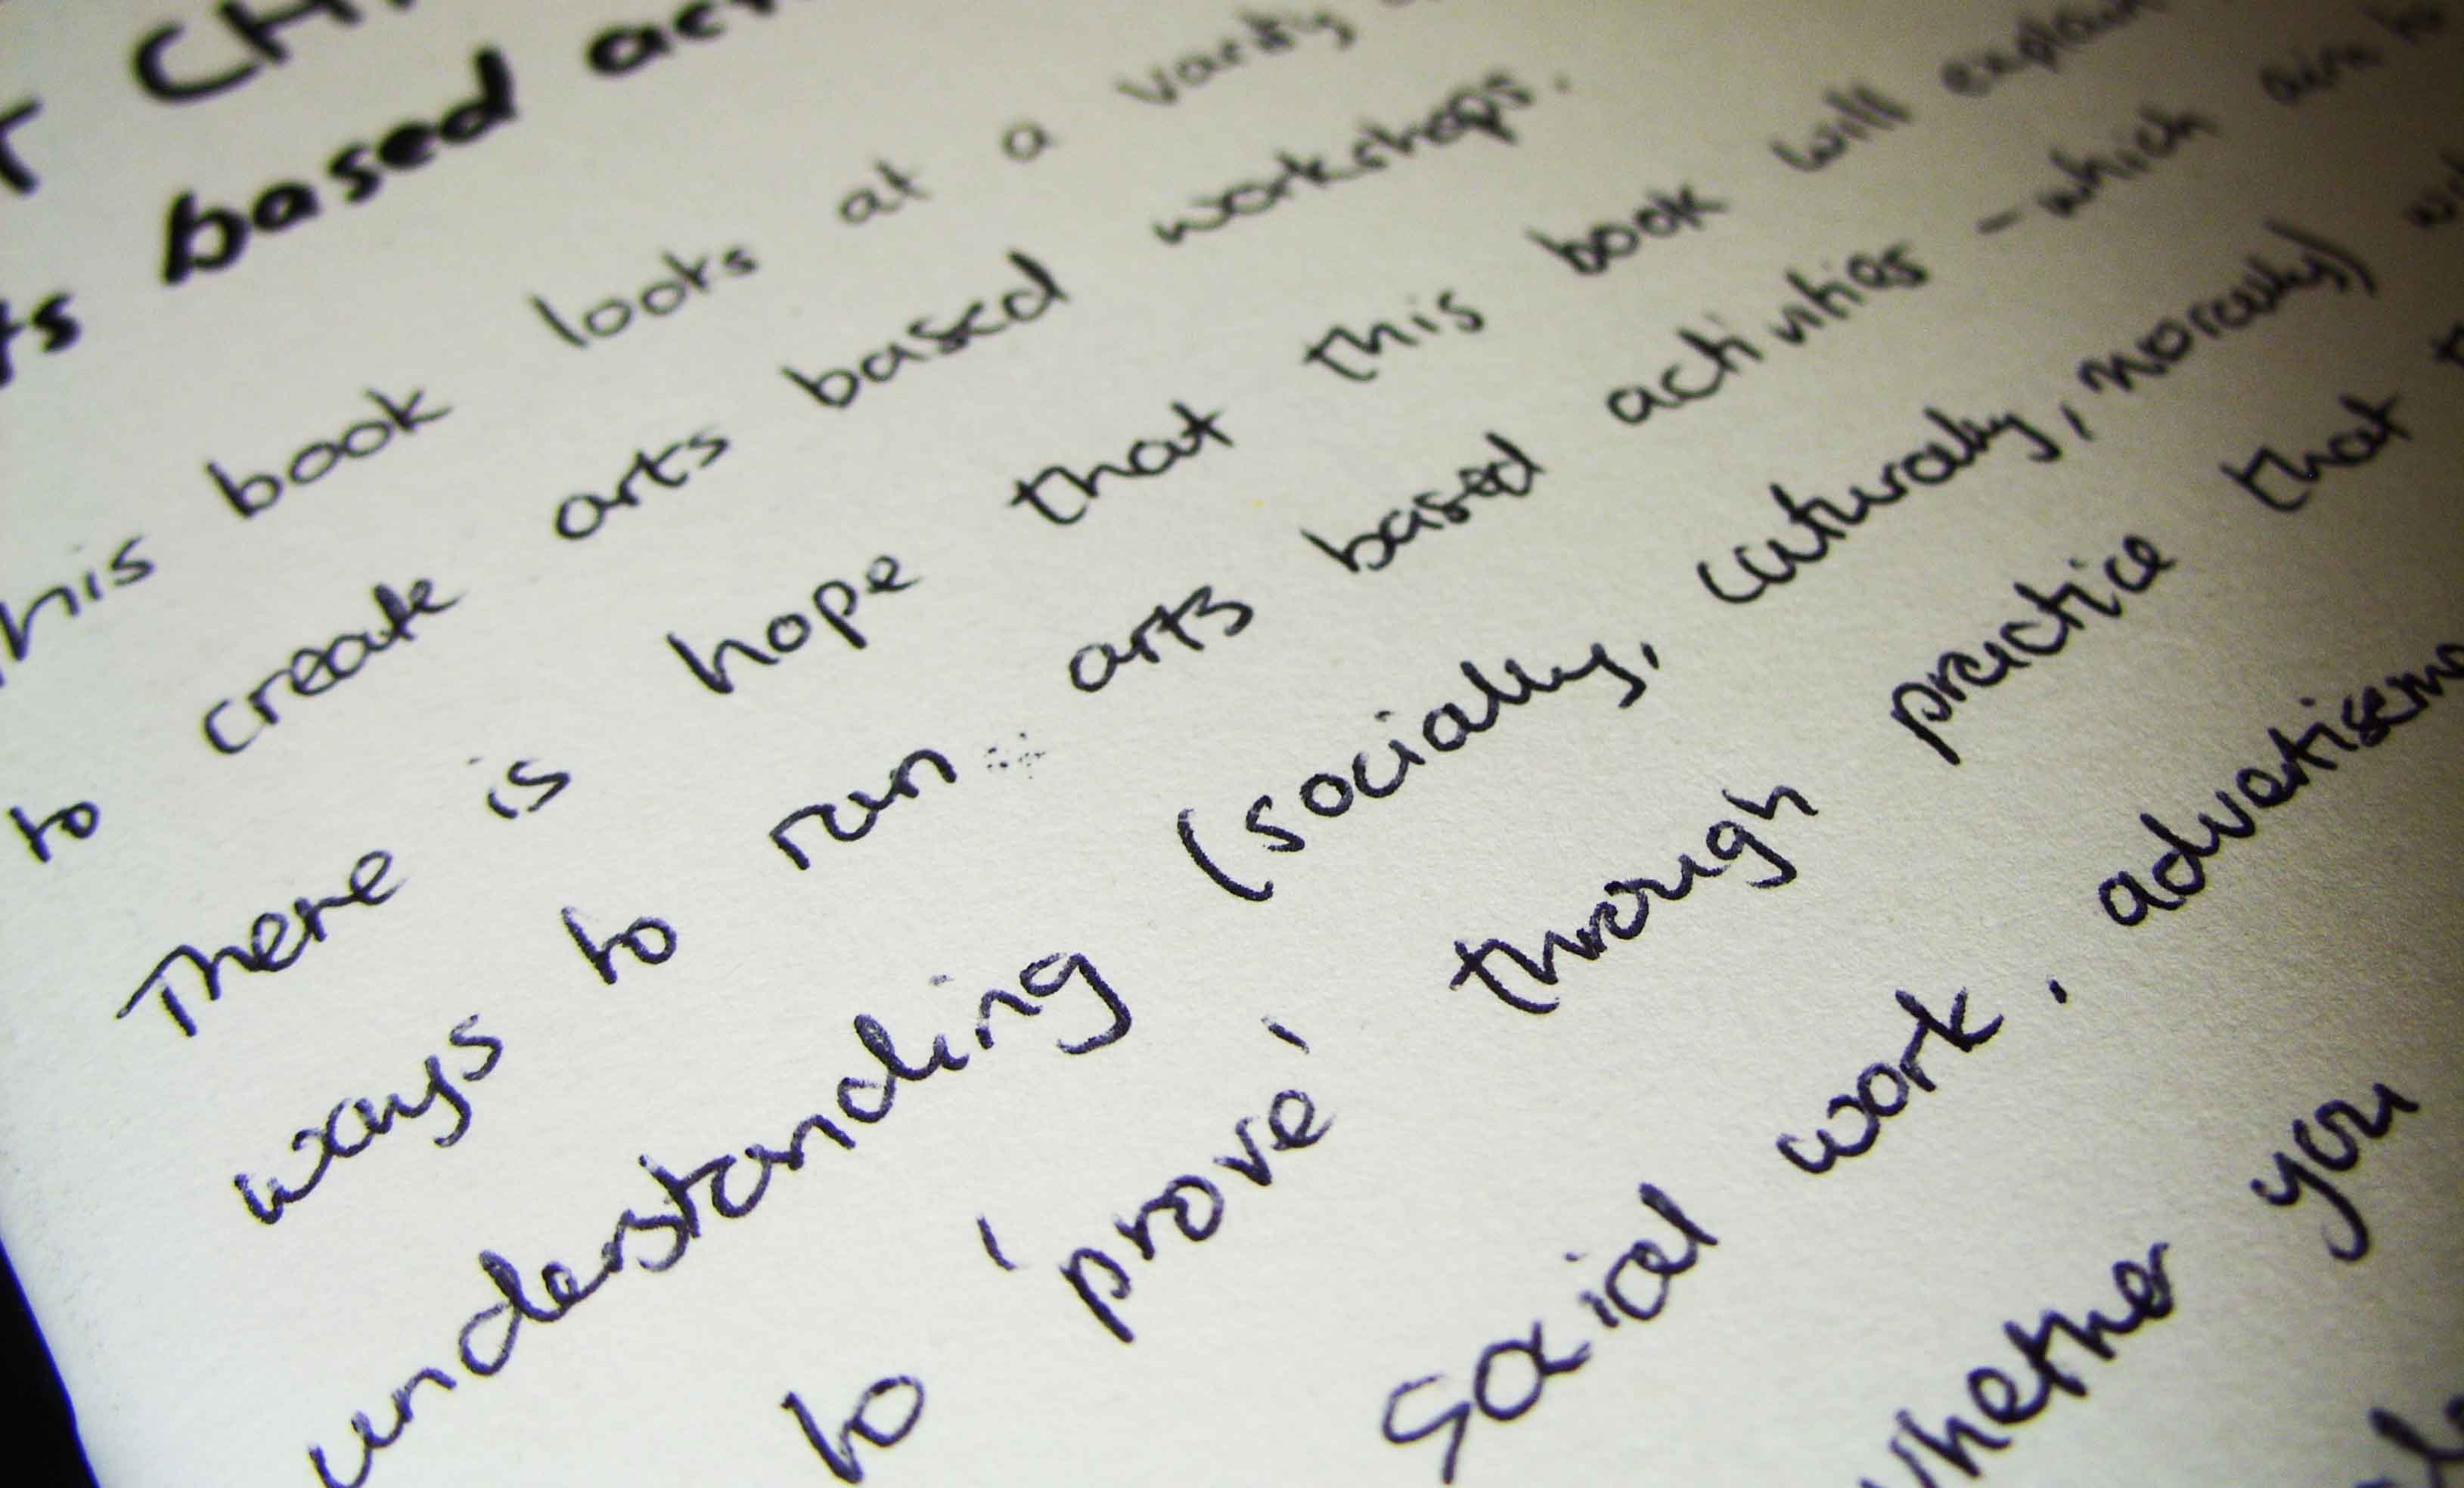 CH
based act
his book looks at a varity
to create arts based workshops.
There is hope that this book will explain
ways to run arts based activities - which aim to
understanding (socially, culturally, morally)
to 'prove' through practice that
Social work, advertisem
whether you